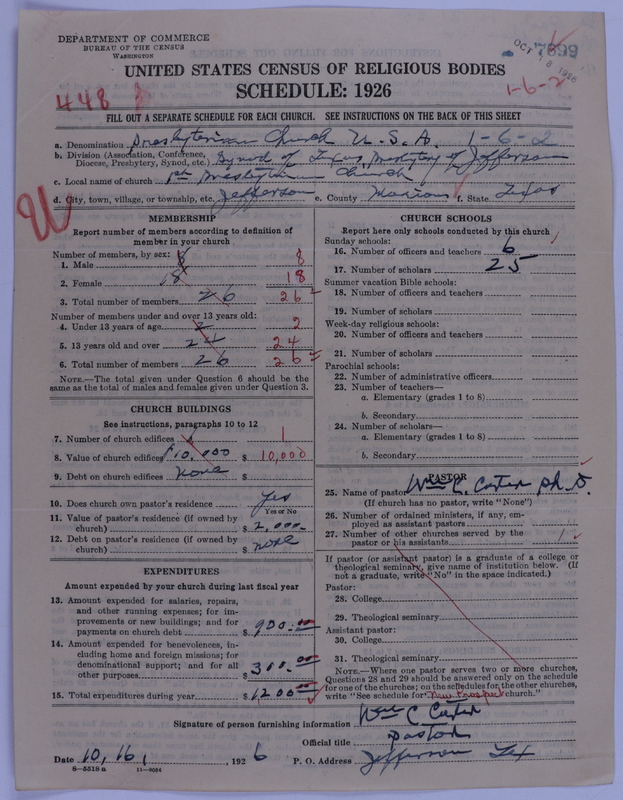 DEPARTMENT OF COMMERCE
BUREAU OF THE CENSUS
WASHINGTON
OCT 18 1926
7899
UNITED STATES CENSUS OF RELIGIOUS BODIES
SCHEDULE: 1926
448
1-6-2
FILL OUT A SEPARATE SCHEDULE FOR EACH CHURCH. SEE INSTRUCTIONS ON THE BACK OF THIS SHEET
a. Denomination Presbyterian Church U.S.A. 1-6-2
b. Division (Association, Conference, Diocese, Presbytery, Synod, etc.) Synod of Texas, Presbytery of Jefferson
c. Local name of church 1st Presbyterian Church
d. City, town, village, or township, etc. Jefferson e. County Marion f. State Texas
MEMBERSHIP
Report number of members according to definition of
member in your church
Number of members, by sex:
1. Male 8 8
2. Female 18 18
3. Total number of members 26 26
Number of members under and over 13 years old:
4. Under 13 years of age 2 2
5. 13 years old and over 24 24
6. Total number of members 26 26
NOTE.—The total given under Question 6 should be the
same as the total of males and females given under Question 3.
CHURCH BUILDINGS
See instructions, paragraphs 10 to 12
7. Number of church edifices 1 1
8. Value of church edifices $10,000 $ 10,000
9. Debt on church edifices None $
10. Does church own pastor's residence Yes
Yes or No
11. Value of pastor's residence (if owned by
church) $ 2,000
12. Debt on pastor's residence (if owned by
church) $ none
EXPENDITURES
Amount expended by your church during last fiscal year
13. Amount expended for salaries, repairs,
and other running expenses; for im-
provements or new buildings; and for
payments on church debt $ 900.00
14. Amount expended for benevolences, in-
cluding home and foreign missions; for
denominational support; and for all
other purposes $ 300.00
15. Total expenditures during year $ 1200.00
CHURCH SCHOOLS
Report here only schools conducted by this church
Sunday schools:
16. Number of officers and teachers 6
17. Number of scholars 25
Summer vacation Bible schools:
18. Number of officers and teachers
19. Number of scholars
Week-day religious schools:
20. Number of officers and teachers
21. Number of scholars
Parochial schools:
22. Number of administrative officers
23. Number of teachers—
a. Elementary (grades 1 to 8)
b. Secondary
24. Number of scholars—
a. Elementary (grades 1 to 8)
b. Secondary
PASTOR
25. Name of pastor Wm C. Cater Ph.D.
(If church has no pastor, write "None")
26. Number of ordained ministers, if any, em-
ployed as assistant pastors
27. Number of other churches served by the
pastor or his assistants 1
If pastor (or assistant pastor) is a graduate of a college or
theological seminary, give name of institution below. (If
not a graduate, write "No" in the space indicated.)
Pastor:
28. College
29. Theological seminary
Assistant pastor:
30. College
31. Theological seminary
NOTE.—Where one pastor serves two or more churches,
Questions 28 and 29 should be answered only on the schedule
for one of the churches; on the schedules for the other churches,
write "See schedule for New Prospect church."
Signature of person furnishing information Wm C Cater
Official title Pastor
Date 10, 16, 1926 P. O. Address Jefferson Tex
8—5518 a 11—8084